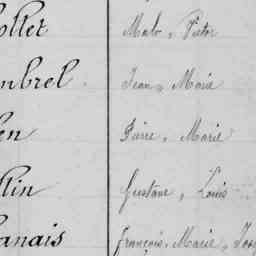 ollet Malo, Victor
mbrel Jean, Marie
en Pierre, Marie
llin Gustave, Louis
anais François, Marie, Jos